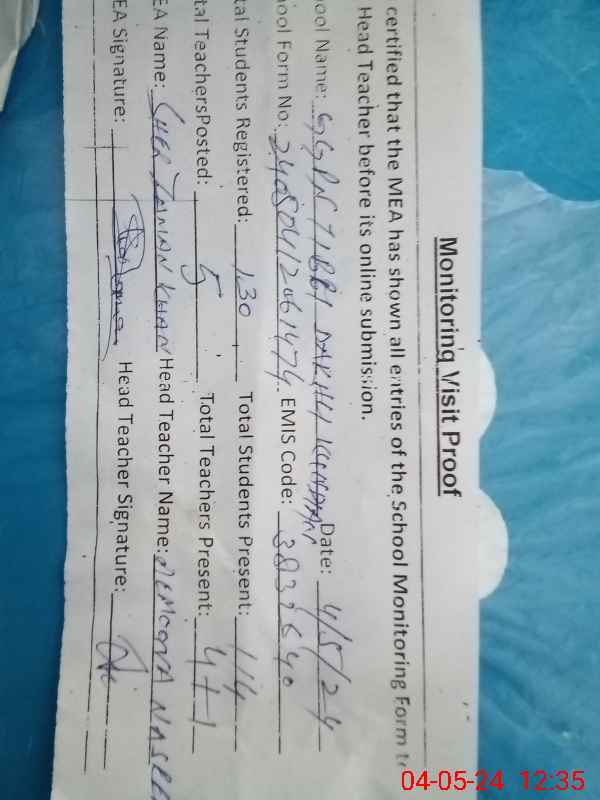 Monitoring Visit Proof
certified that the MEA has shown all entries of the School Monitoring Form to
Head Teacher before its online submission.
ool Name: GGPS TIBBI Date: 4/5/24
ool Form No: 24050412061474 EMIS Code:
tal Students Registered: 130 Total Students Present: 114
tal TeachersPosted: 5 Total Teachers Present: 4+1
EA Name: SHER ZAMAN KHAN Head Teacher Name:
EA Signature: Head Teacher Signature:
04-05-24 12:35